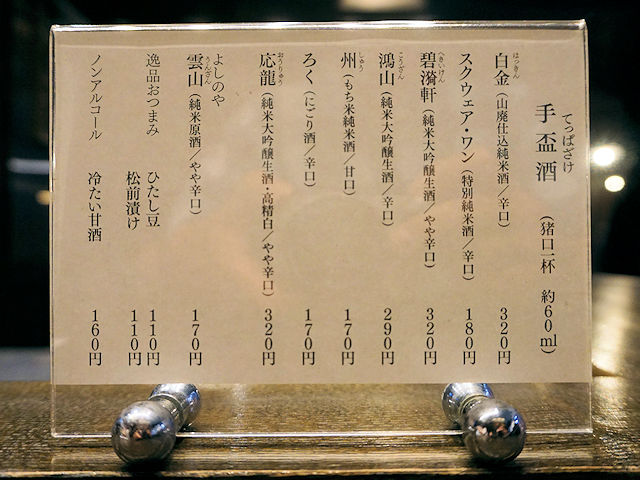 てっぱざけ
手盃酒 (猪口一杯 約60ml)
はっきん
白金(山廃仕込純米酒/辛口) 320円
スクウェア・ワン(特別純米酒/辛口) 180円
へきいけん
碧漪軒(純米大吟醸生酒/やや辛口) 320円
こうざん
鴻山(純米大吟醸生酒/辛口) 290円
しゅう
州(もち米純米酒/甘口) 170円
ろく(にごり酒/辛口) 170円
おうりゅう
応龍(純米大吟醸生酒・高精白/やや辛口) 320円
よしのや
うんざん
雲山(純米原酒/やや辛口) 170円
逸品おつまみ ひたし豆 110円
松前漬け 110円
ノンアルコール 冷たい甘酒 160円